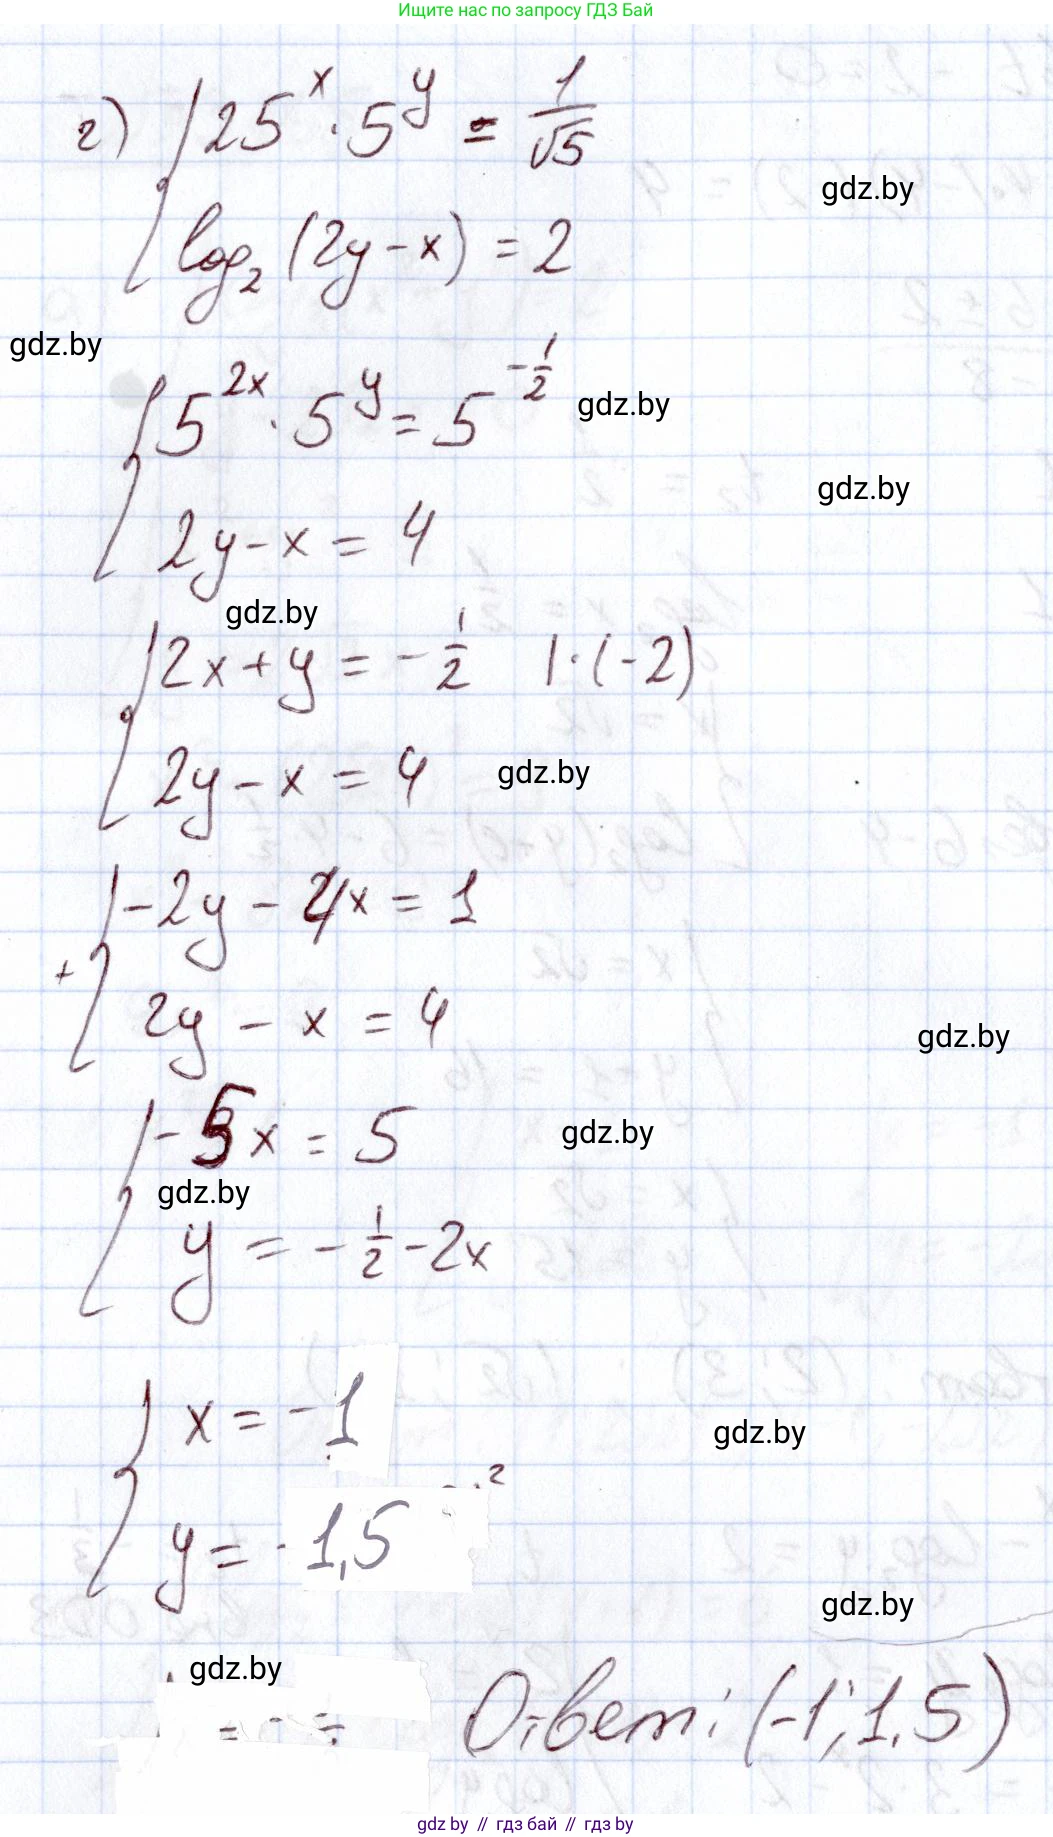 Ищите нас по запросу ГДЗ Бай
г) { 25^x · 5^y = 1/√5
gdz.by
log₂ (2y - x) = 2
gdz.by
{ 5^(2x) · 5^y = 5^(-1/2)
gdz.by
gdz.by
2y - x = 4
gdz.by
{ 2x + y = - 1/2 | · (-2)
2y - x = 4
gdz.by
+ { -2y - 4x = 1
2y - x = 4
gdz.by
{ -5x = 5
gdz.by
gdz.by
y = - 1/2 - 2x
{ x = -1
gdz.by
y = - 1,5
gdz.by
gdz.by
Ответ: (-1; 1,5)
gdz.by // гдз бай // гдз by